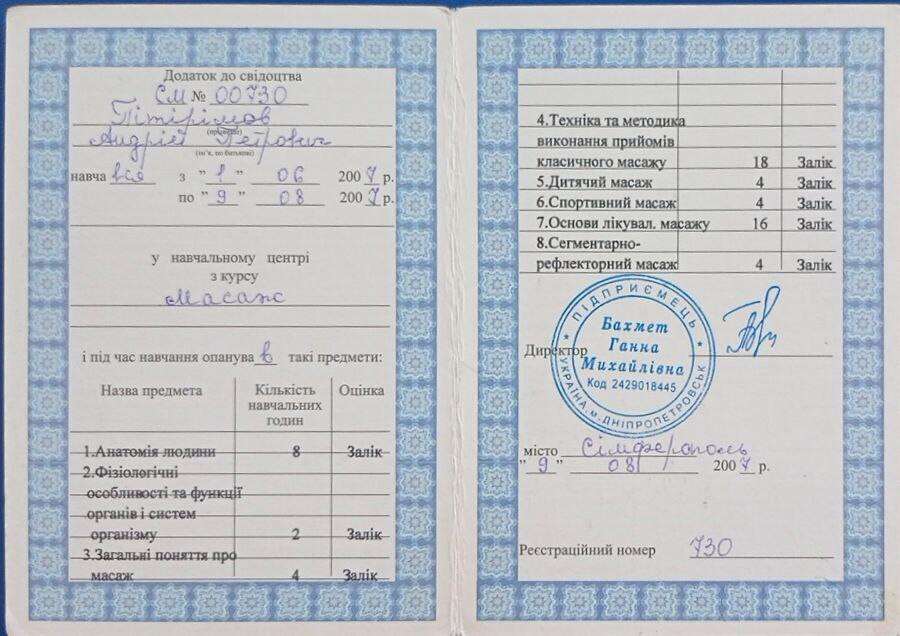 Додаток до свідоцтва
СМ № 00730
Пітірімов
(прізвище)
Андрій Петрович
(ім'я, по батькові)
навчався з "1" 06 2007 р.
по "9" 08 2007 р.
у навчальному центрі
з курсу
Масаж
і під час навчання опанував такі предмети:
Назва предмета Кількість навчальних годин Оцінка
1.Анатомія людини 8 Залік
2.Фізіологічні
особливості та функції
органів і систем
організму 2 Залік
3.Загальні поняття про
масаж 4 Залік
4.Техніка та методика
виконання прийомів
класичного масажу 18 Залік
5.Дитячий масаж 4 Залік
6.Спортивний масаж 4 Залік
7.Основи лікувал. масажу 16 Залік
8.Сегментарно-
рефлекторний масаж 4 Залік
Директор
ПІДПРИЄМЕЦЬ
Бахмет
Ганна
Михайлівна
Код 2429018445
УКРАЇНА, м. ДНІПРОПЕТРОВСЬК
місто Сімферополь
"9" 08 2007 р.
Реєстраційний номер 730